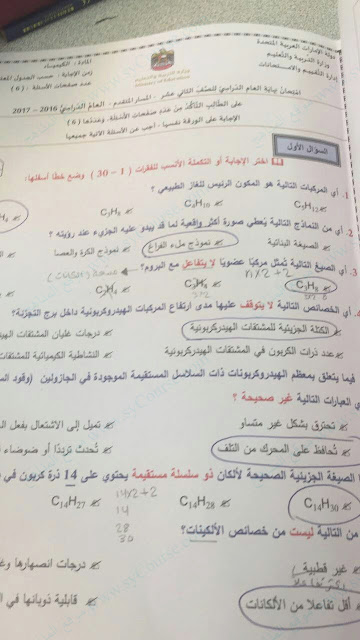 دولة الإمارات العربية المتحدة
وزارة التربية والتعليم
إدارة التقييم والامتحانات
المادة : الكيمياء
زمن الإجابة : حسب الجدول
عدد صفحات الأسئلة : ( 6 )
امتحان نهاية العام الدراسي للصف الثاني عشر - المسار المتقدم - العام الدراسي 2016 – 2017
على الطالب التأكد من عدد صفحات الأسئلة، وعددها ( 6 )
الإجابة على الورقة نفسها - أجب عن الأسئلة الآتية جميعها
السؤال الأول
اختر الإجابة أو التكملة الأنسب للفقرات ( 1 – 30 ) وضع خطاً أسفلها:
1. أي المركبات التالية هو المكون الرئيس للغاز الطبيعي ؟
C5H12 C4H10 C3H8
2. أي من النماذج التالية يعطي صورة أكثر واقعية لما قد يبدو عليه الجزيء عند رؤيته ؟
الصيغة البنائية نموذج ملء الفراغ نموذج الكرة والعصا
3. أي الصيغ التالية تمثل مركباً عضوياً لا يتفاعل مع البروم؟
nx2+2
C3H8
4. أي الخصائص التالية لا يتوقف عليها مدى ارتفاع المركبات الهيدروكربونية داخل برج التجزئة؟
الكتلة الجزيئية للمشتقات الهيدروكربونية درجات غليان المشتقات
عدد ذرات الكربون في المشتقات الهيدروكربونية النشاطية الكيميائية للمشتقات
فيما يتعلق بمعظم الهيدروكربونات ذات السلاسل المستقيمة الموجودة في الجازولين (وقود
العبارات التالية غير صحيحة ؟
تحترق بشكل غير متساو تميل إلى الاشتعال بفعل
تحافظ على المحرك من التلف تحدث ترددًا أو ضوضاء
الصيغة الجزيئية الصحيحة لألكان ذو سلسلة مستقيمة يحتوي على 14 ذرة كربون في
C14H30 C14H28 C14H27
14x2+2
14
28
30
من التالية ليست من خصائص الألكينات؟
غير قطبية درجات انصهارها
أقل تفاعلا من الألكانات قابلية ذوبانها في